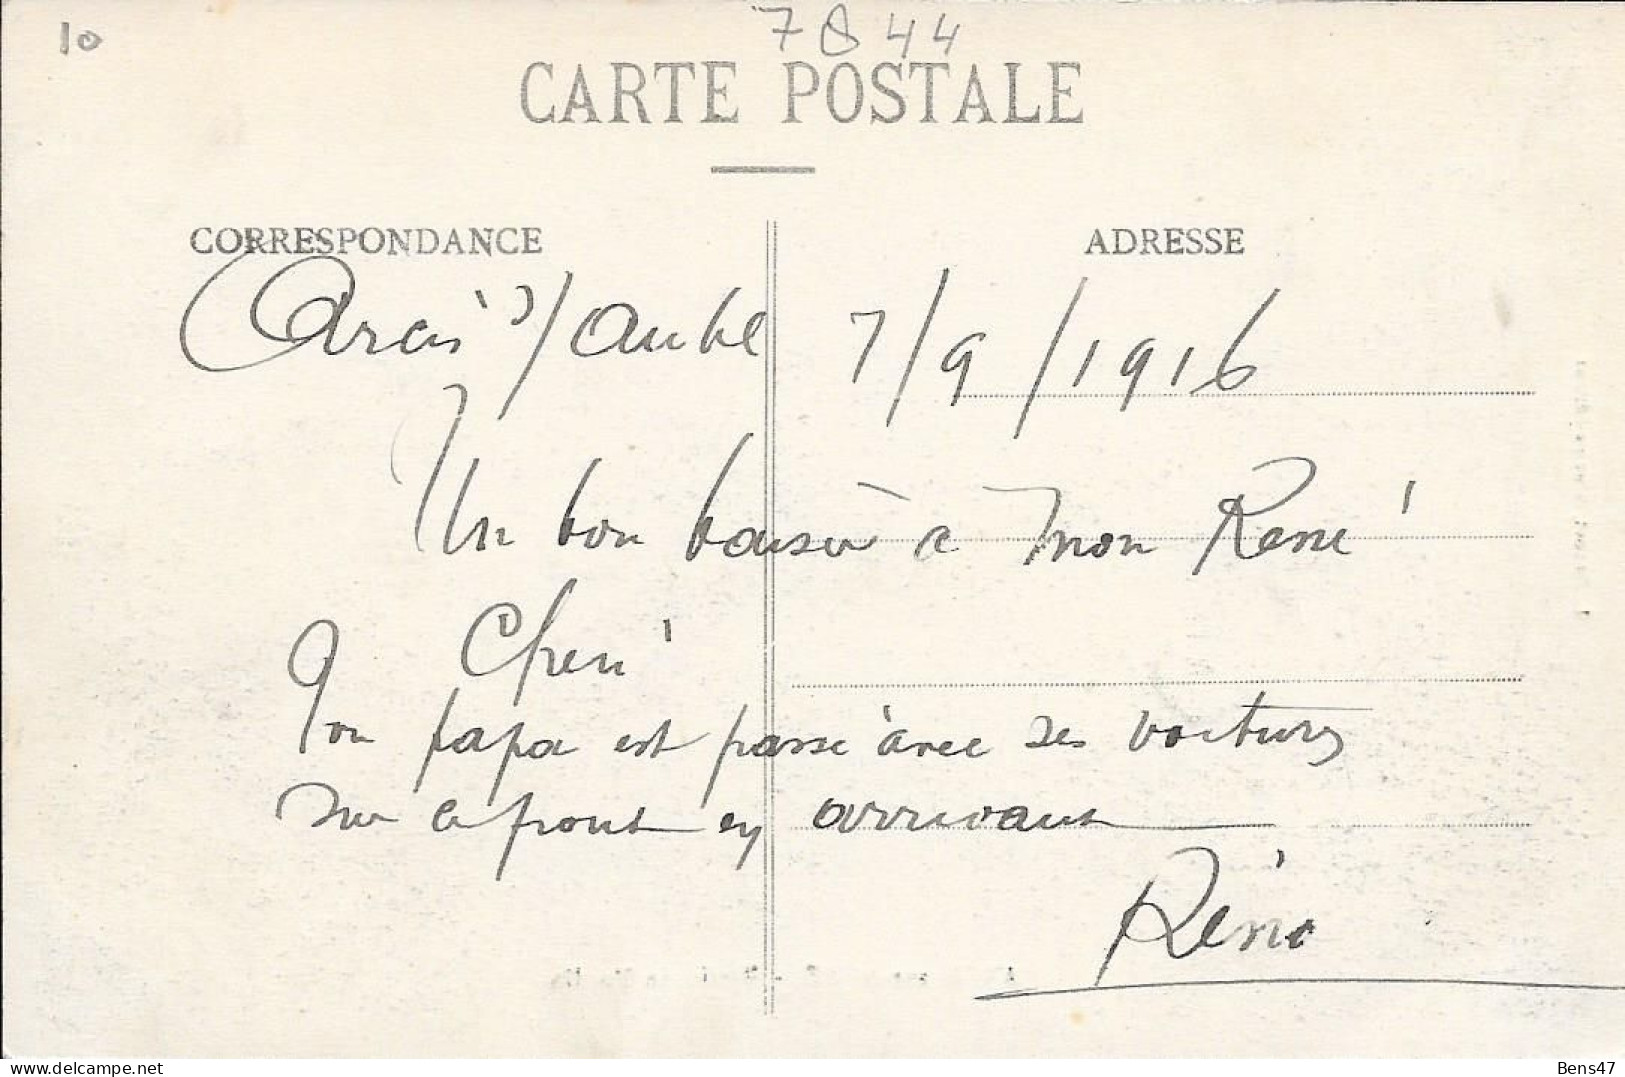 10
7844
CARTE POSTALE
CORRESPONDANCE
ADRESSE
Arcis s/ Aube 7/9/1916
Un bon baiser à mon René
Cheri
Ton papa est passé avec ses voitures
sur le front en arrivant
René
delcampe.net
Bens47